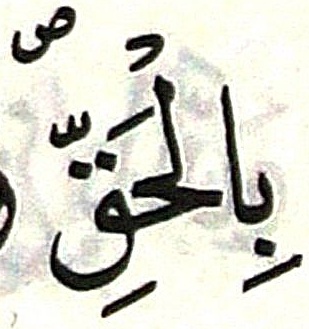 بِالْحَقِّ ۖص